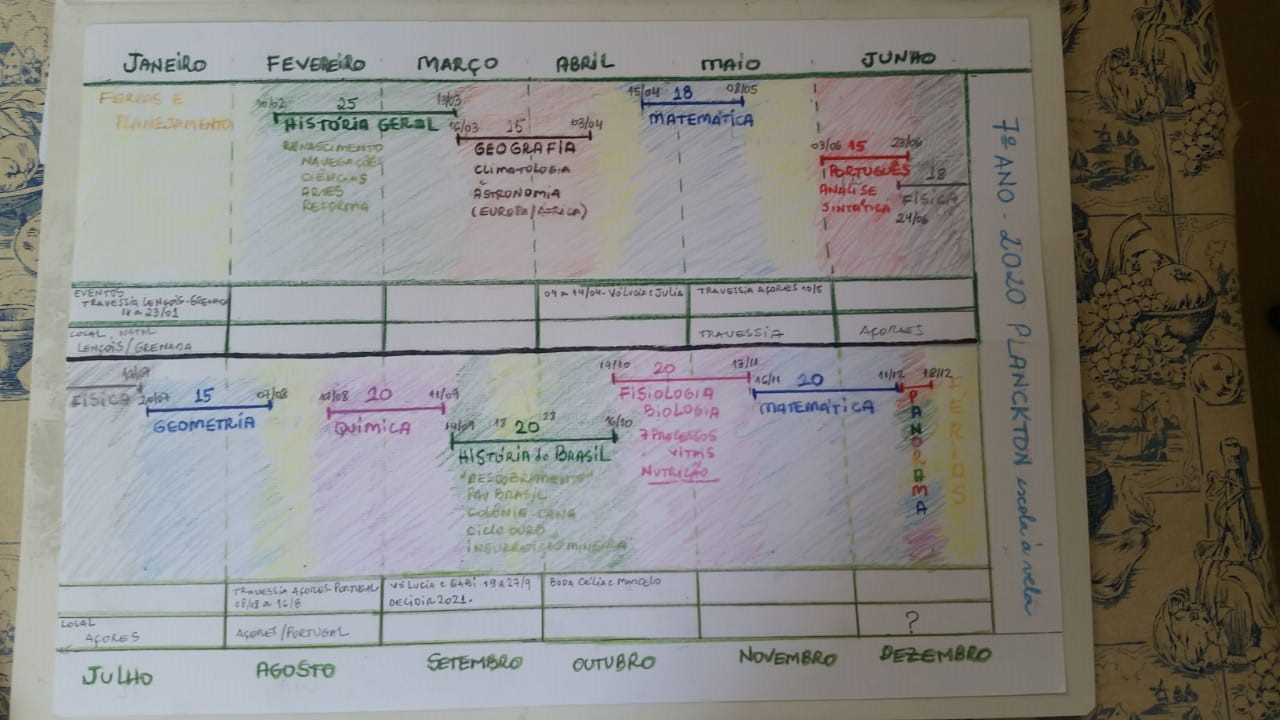 JANEIRO FEVEREIRO MARÇO ABRIL MAIO JUNHO
FERIAS E
PLANEJAMENTO
10/02 25 13/03
HISTÓRIA GERAL
RENASCIMENTO
NAVEGAÇÕES
CIÊNCIAS
ARTES
REFORMA
16/03 15 03/04
GEOGRAFIA
CLIMATOLOGIA
ASTRONOMIA
(EUROPA/ÁFRICA)
15/04 18 08/05
MATEMÁTICA
03/06 15 23/06
PORTUGUÊS
ANÁLISE
SINTÁTICA
18
FÍSICA
24/06
EVENTOS
TRAVESSIA LENÇOIS-GRENADA
a 23/01
04 a 14/04 - VÓ LUCIA e JULIA
TRAVESSIA AÇORES 10/5
LOCAL NATAL
LENÇOIS/GRENADA
TRAVESSIA
AÇORES
7º ANO - 2020 PLANCKTON escola à vela
FÍSICA
20/07 15 07/08
GEOMETRIA
20 11/09
QUÍMICA
14/09 18 20 28 16/10
HISTÓRIA do BRASIL
"DESCOBRIMENTO"
PAU BRASIL
COLÔNIA - CANA
CICLO OURO
INSURREIÇÃO MINEIRA
19/10 20 13/11
FISIOLOGIA
BIOLOGIA
7 PROCESSOS
VITAIS
NUTRIÇÃO
16/11 20 11/12
MATEMÁTICA
18/12
PANORAMA
FÉRIAS
TRAVESSIA AÇORES-PORTUGAL
08/08 a 16/8
VÓ LUCIA E GABI 19 a 27/9
DECIDIR 2021.
BODA CÉLIA E MARCELO
LOCAL
AÇORES
AÇORES/PORTUGAL
?
JULHO AGOSTO SETEMBRO OUTUBRO NOVEMBRO DEZEMBRO